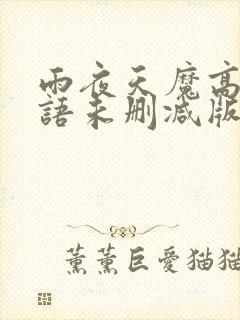 雨夜天魔高
語未删减版
薰薰巨愛猫猫